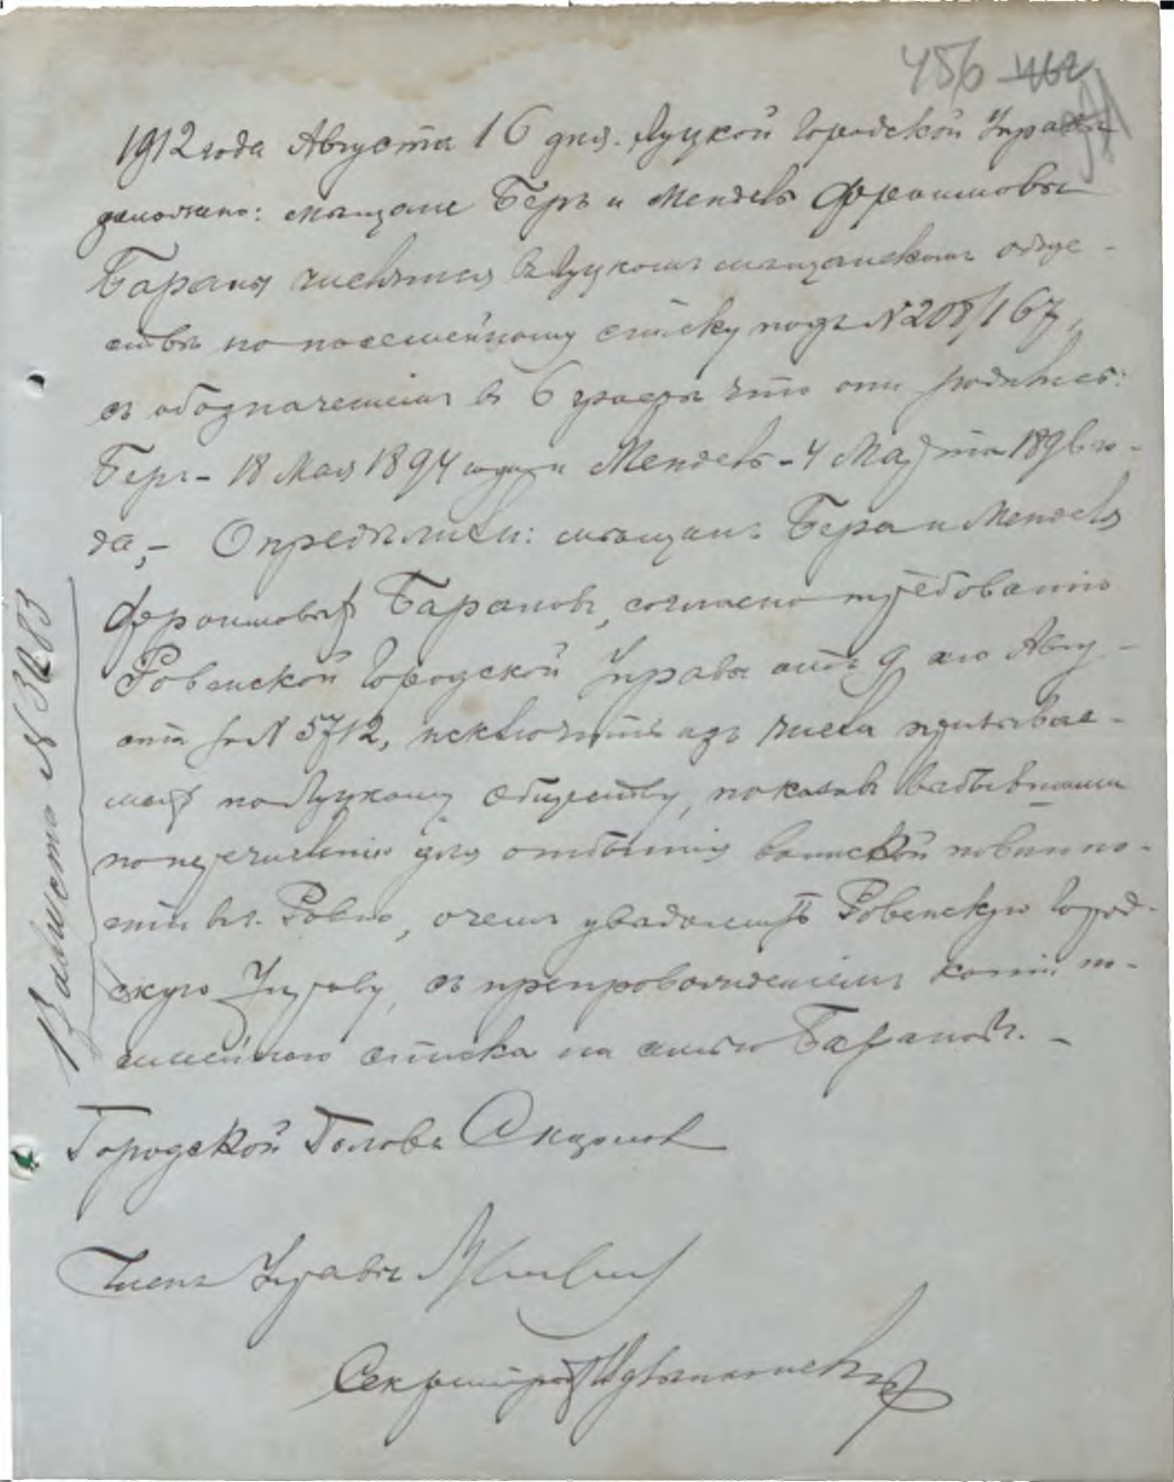 456 462
1912 года Августа 16 дня. Луцкой Городской Управе
доложено: мещане Беръ и Мендель Фроимовы
Бараны числятся въ Луцкомъ мещанскомъ обще-
ствѣ по посемейному списку подъ № 208/167,
съ обозначениемъ въ 6 графѣ что они родились:
Беръ - 18 Мая 1894 года и Мендель - 4 Марта 1896 го-
да, - Определили: мещанъ Бера и Менделя
Фроимовыхъ Барановъ, согласно требованію
Ровенской Городской Управы отъ 9 сего Авгу-
ста за № 5712, исключить изъ числа призывае-
мыхъ по Луцкому обществу, показавъ выбывшими
по перечисленію для отбытія воинской повинно-
сти въ г. Ровно, о чемъ уведомить Ровенскую Город-
скую Управу, съ препровожденіемъ копіи по-
семейнаго списка на семью Барановъ. -
Городской Голова
Членъ Управы
Секретарь
№ 3083